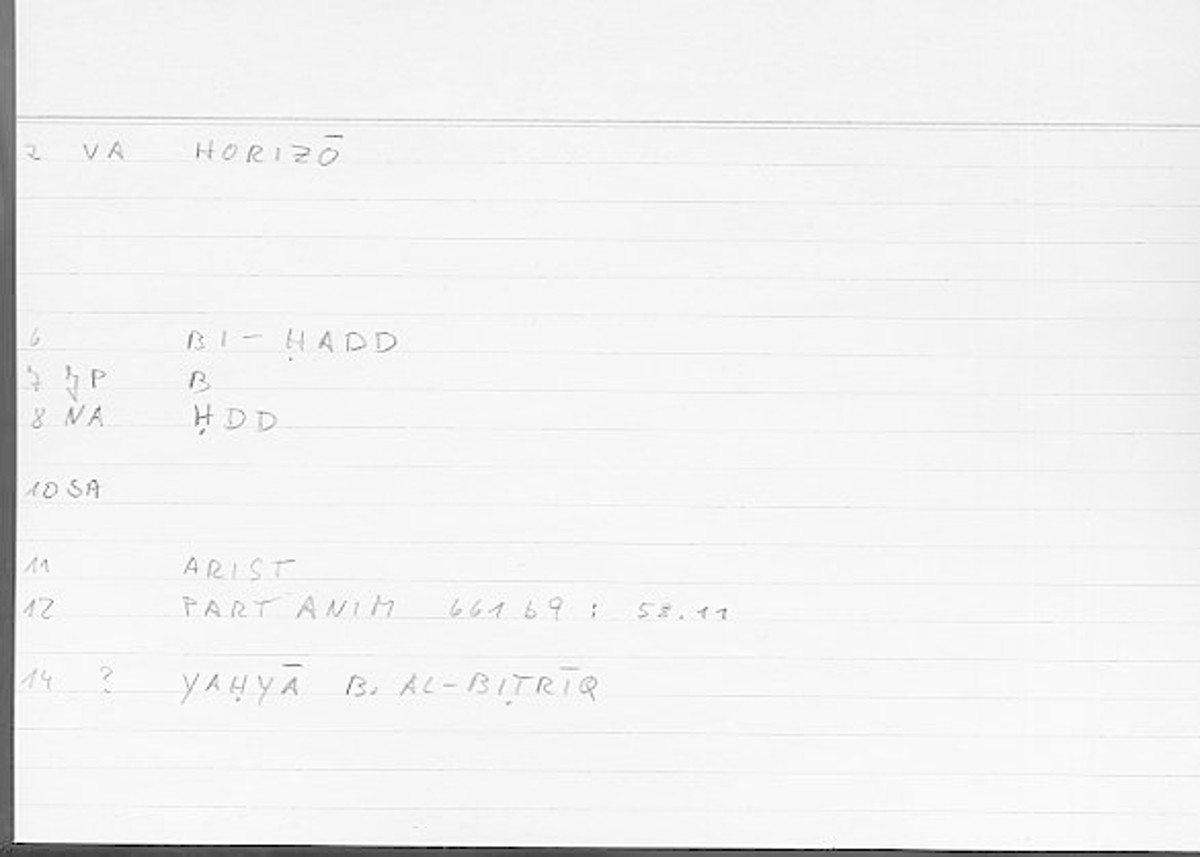 2 VA HORIZŌ
6 BI-ḤADD
7 P B
8 NA ḤDD
10 SA
11 ARIST
12 PART ANIM 661 b9 : 58.11
14 ? YAḤYĀ B. AL-BIṬRĪQ